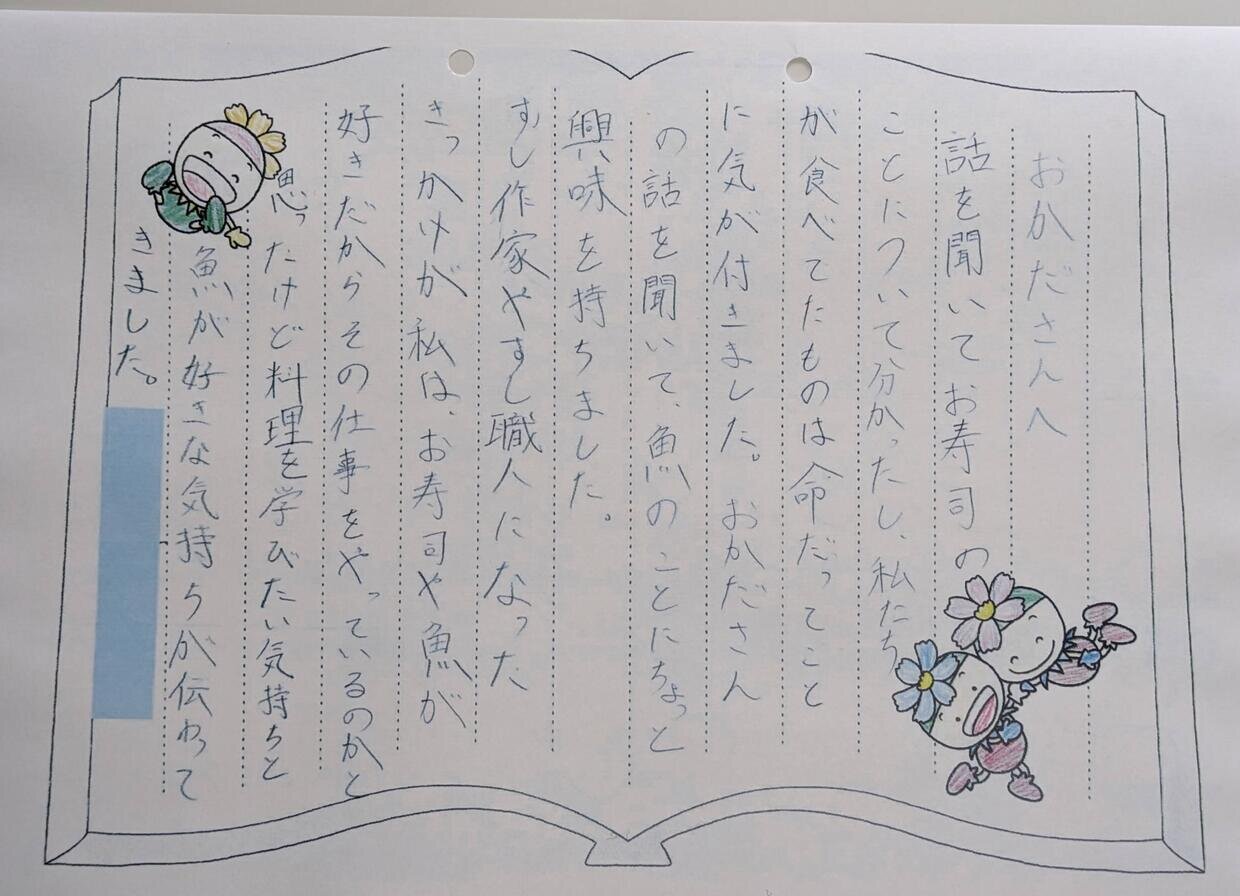 おかださんへ
話を聞いてお寿司の
ことについて分かったし、私たち
が食べてたものは命だってこと
に気が付きました。おかださん
の話を聞いて、魚のことにちょっと
興味を持ちました。
すし作家やすし職人になった
きっかけが私は、お寿司や魚が
好きだからその仕事をやっているのかと
思ったけど料理を学びたい気持ちと
魚が好きな気持ちが伝わって
きました。